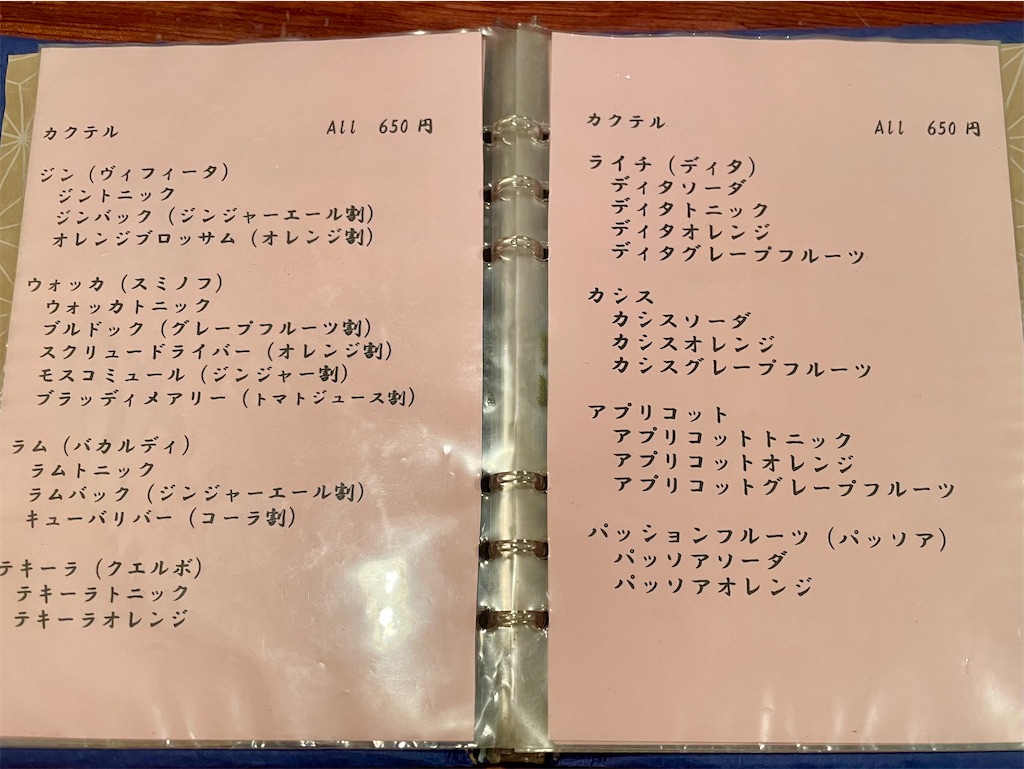 カクテル All 650円
ジン（ヴィフィータ）
ジントニック
ジンバック（ジンジャーエール割）
オレンジブロッサム（オレンジ割）
ウォッカ（スミノフ）
ウォッカトニック
ブルドック（グレープフルーツ割）
スクリュードライバー（オレンジ割）
モスコミュール（ジンジャー割）
ブラッディメアリー（トマトジュース割）
ラム（バカルディ）
ラムトニック
ラムバック（ジンジャーエール割）
キューバリバー（コーラ割）
テキーラ（クエルボ）
テキーラトニック
テキーラオレンジ
カクテル All 650円
ライチ（ディタ）
ディタソーダ
ディタトニック
ディタオレンジ
ディタグレープフルーツ
カシス
カシスソーダ
カシスオレンジ
カシスグレープフルーツ
アプリコット
アプリコットトニック
アプリコットオレンジ
アプリコットグレープフルーツ
パッションフルーツ（パッソア）
パッソアソーダ
パッソアオレンジ